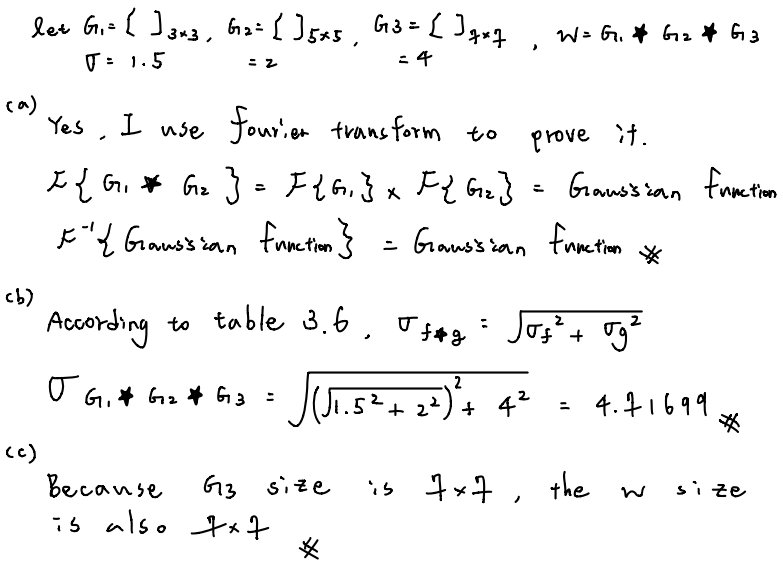 let G₁ = [ ]₃ₓ₃ , G₂ = [ ]₅ₓ₅ , G₃ = [ ]₇ₓ₇ , w = G₁ ★ G₂ ★ G₃
σ = 1.5 = 2 = 4
(a)
Yes, I use fourier transform to prove it.
F{ G₁ ★ G₂ } = F{G₁} × F{G₂} = Gaussian function
F⁻¹{ Gaussian function } = Gaussian function ※
(b)
According to table 3.6, σ f★g = √(σf² + σg²)
σ G₁ ★ G₂ ★ G₃ = √((√(1.5² + 2²))² + 4²) = 4.71699 ※
(c)
Because G₃ size is 7×7, the w size
is also 7×7 ※